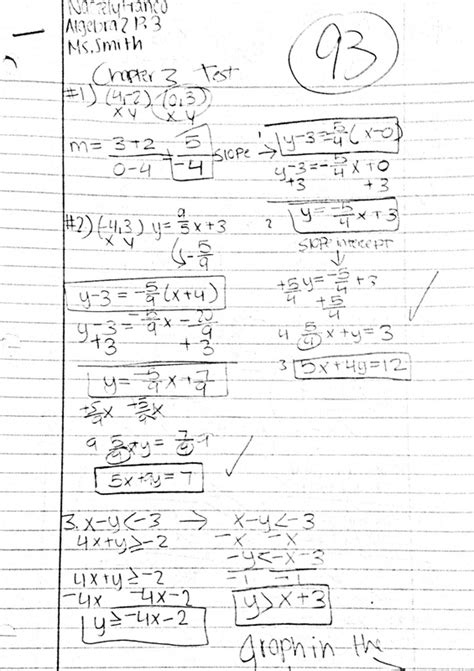 Algebra 2 P.3
Ms. Smith
93
Chapter 3 Test
#1) (4,-2) (0,3)
x y x y
m = 3+2 / 0-4 = 5 / -4 slope →
y-3 = -5/4 (x-0)
y-3 = -5/4 x+0
+3 +3
y = -5/4 x+3
slope intercept
+5/4 y = -5/4 + 3
+5/4
4 5/4 x+y = 3
3 5x+4y=12
#2) (-4,3) y = 9/5 x+3
x y
-5/9
y-3 = -5/9 (x+4)
y-3 = -5/9 x -20/9
+3 +3
y = -5/9 x + 7/9
+5/9 x +5/9 x
9 5/9 x+y = 7/9 9
5x+9y = 7
3. x-y<-3 → x-y<-3
4x+y≥-2 -x -x
-y<-x-3
4x+y≥-2 -1 -1
-4x -4x-2
y>x+3
y≥-4x-2
graph in the